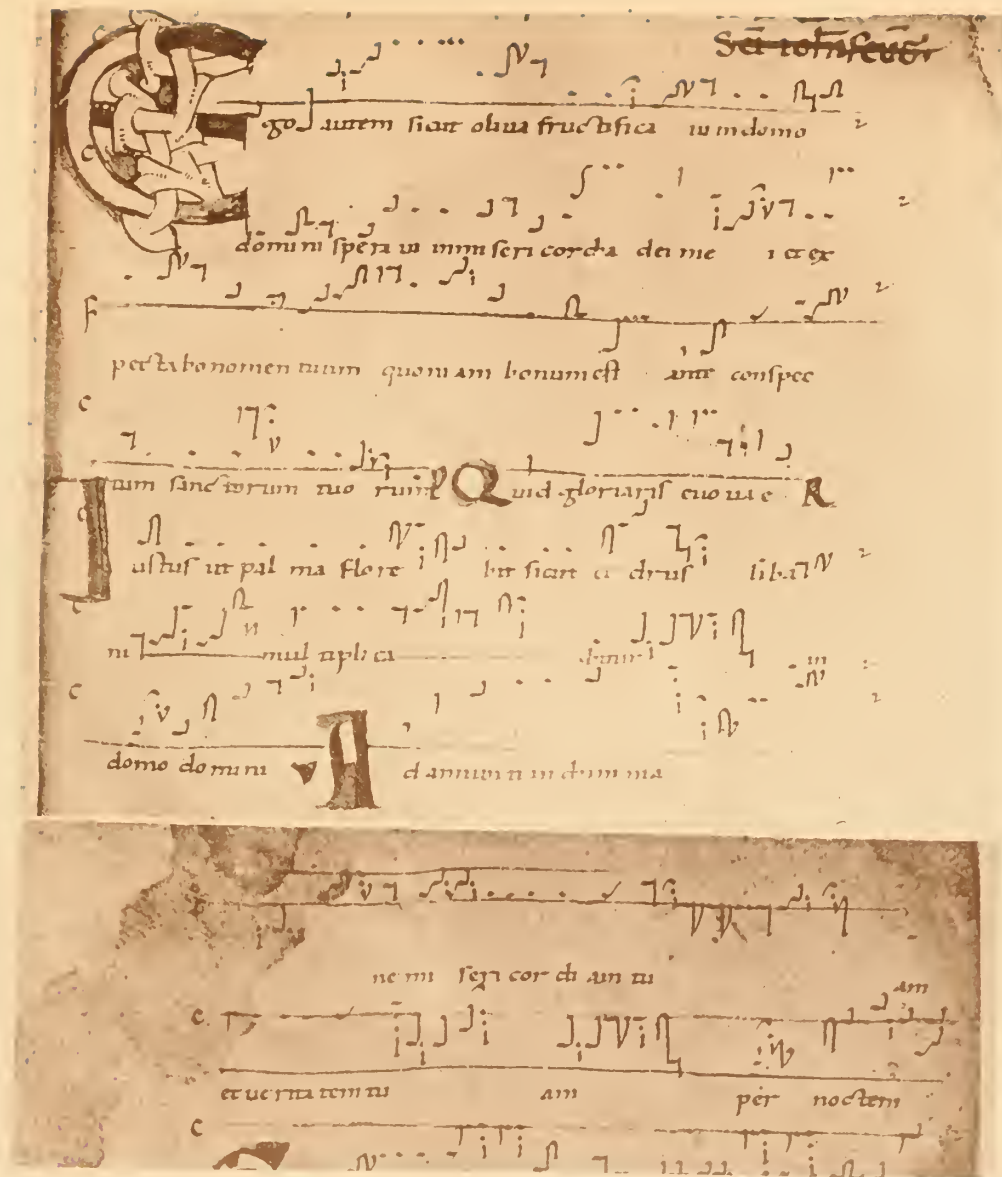 go autem sicut oliua fructifica ui in domo
domini speraui in miseri cordia dei me i et ex
F
pecta bo nomen tuum quoniam bonum est ante conspec
c
tum sanctorum tuo rum Quid gloriaris euouae R
c
Iustus ut pal ma flore bit sicut ce drus liba
ni mul tipli ca bitur in
c
domo domini Ad annuntiandum ma
ne mi seri cor di am tu
am
c
et uerita tem tu am per noctem
c